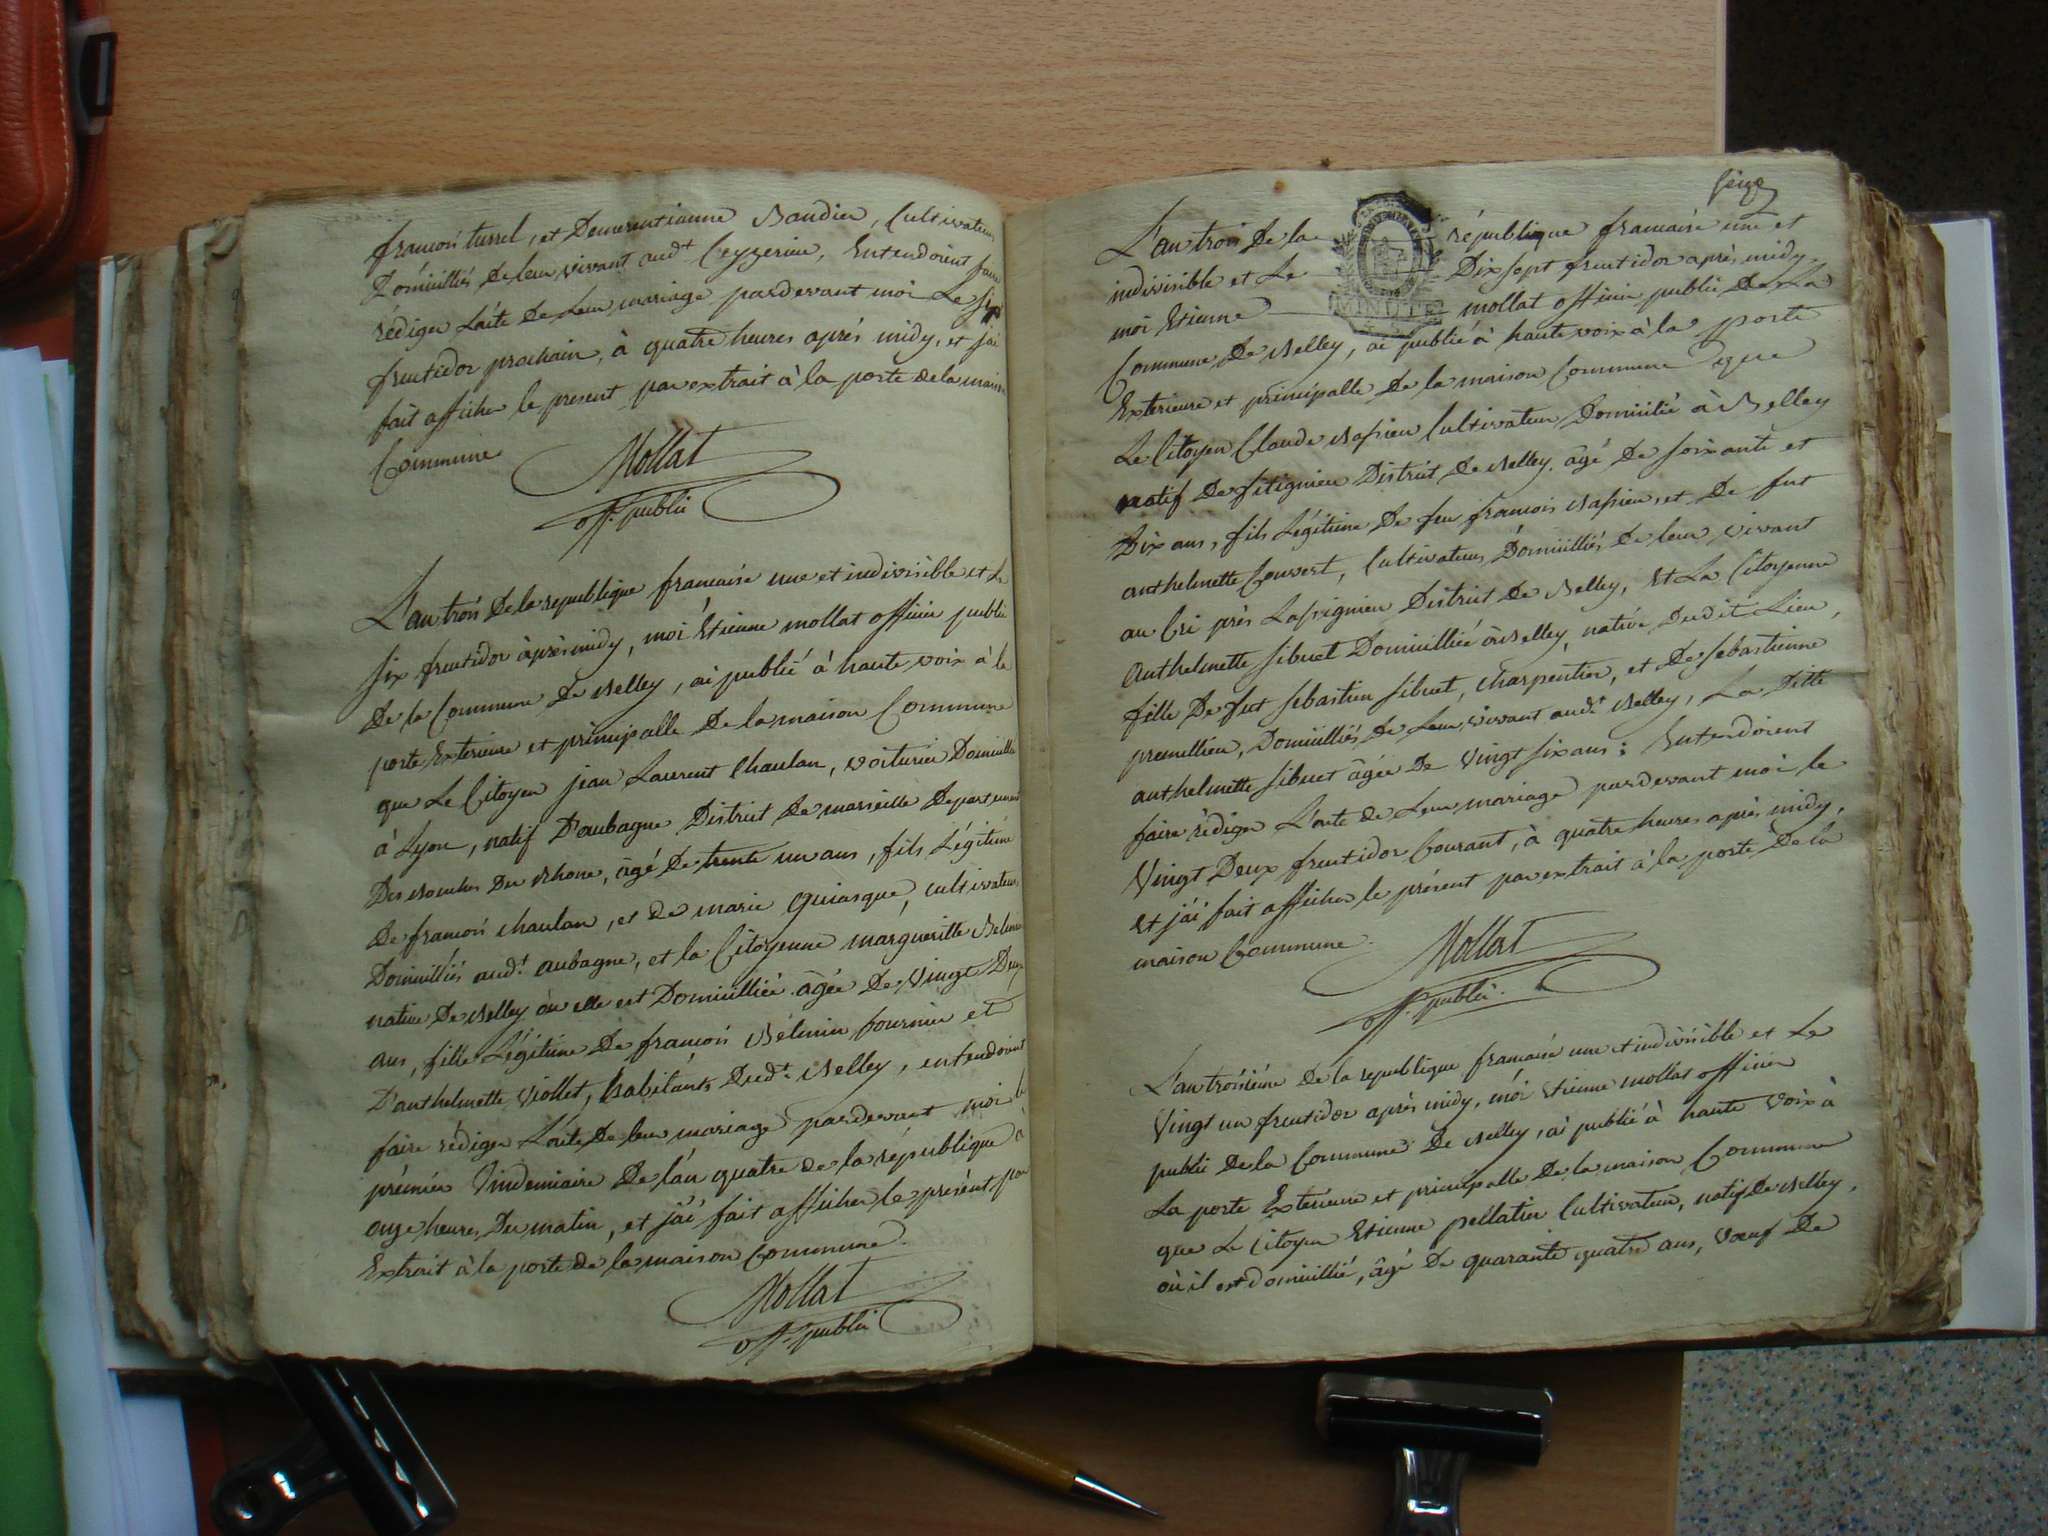 françois turrel, et Demerentianne Baudier, Cultivateurs
Domiciliés de leur vivant aud.t Ceyzerieu, Entendoient faire
rédiger l'acte De Leur mariage pardevant moi Le six
fructidor prochain, à quatre heures après midy, et j'ai
fait afficher le present par extrait à la porte dela maison
Commune
Mollat
off. public
L'an trois De la republique française une et indivisible et Le
six fructidor après midy, moi Etienne mollat officier public
De la Commune De Belley, ai publié à haute voix à la
porte Exterieure et principalle De la maison Commune
que Le Citoyen jean Laurent Chaulan, voiturier Domicilié
à Lyon, natif D'aubagne District De marseille Departement
Des Bouches Du Rhone, âgé De trente un ans, fils Légitime
De françois chaulan, et de marie Guiasque, cultivateurs
Domiciliés aud.t aubagne, et la Citoyenne marguerite
native De Belley où elle est Domiciliée âgée De Vingt Deux
ans, fille Légitime De françois Bélenier fournier et
D'anthelmette Viollet, habitants Dud.t Belley, entendoient
faire rédiger L'acte De leur mariage pardevant moi le
prémier Vindemiaire De l'an quatre de la république à
onze heures Du matin, et j'ai fait afficher le présent par
Extrait à la porte de la maison Commune.
Mollat
off. public
L'an trois De la république française une et
indivisible et Le Dix sept fructidor après midy,
moi Etienne mollat officier public De La
MINUTE
Commune De Belley, ai publié à haute voix à la porte
Exterieure et principalle De la maison Commune que
Le Citoyen Claude Cultivateur Domicilié à Belley
natif De District De Belley, âgé De soixante et
Dix ans, fils Légitime De feu françois et De fut
anthelmette Convert, Cultivateurs Domiciliés De leur vivant
au Cri près District De Belley, Et La Citoyenne
Anthelmette Sibuet Domiciliée à Belley, native Dudit Lieu,
fille De fut Sebastien Sibuet, charpentier, et De Sebastienne
premillieu, Domiciliés De Leur vivant aud.t Belley, La Ditte
anthelmette Sibuet âgée De Vingt six ans; Entendoient
faire rédiger L'acte de Leur mariage pardevant moi le
Vingt Deux fructidor Courant, à quatre heures après midy,
Et j'ai fait afficher le présent par extrait à la porte De la
maison Commune.
Mollat
off. public.
L'an troisiéme De la republique française une et indivisible et Le
Vingt un fructidor après midy, moi Etienne mollat officier
public De la Commune De Belley, ai publié à haute voix à
La porte Extérieure et principalle De la maison Commune
que Le Citoyen Etienne pellatier Cultivateur, natif De Belley,
où il est domicilié, âgé De quarante quatre ans, Vœuf De